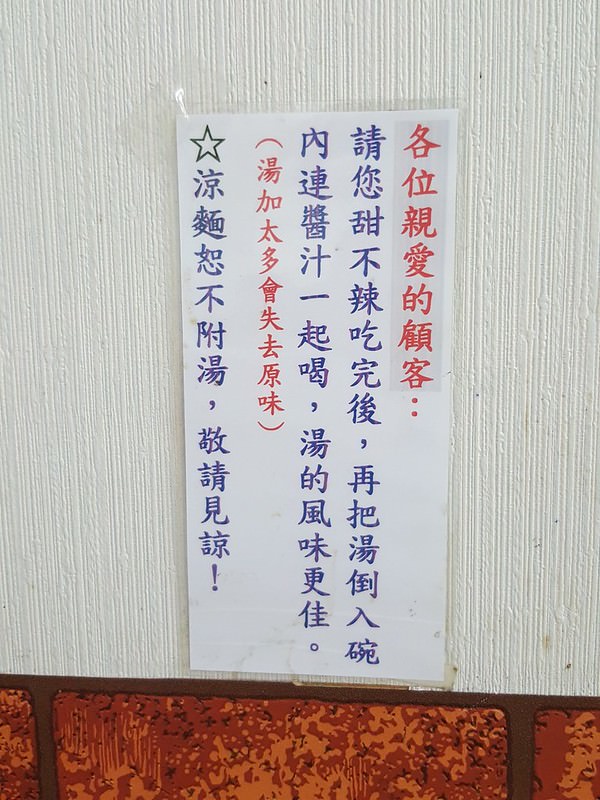 各位親愛的顧客：
請您甜不辣吃完後，再把湯倒入碗
內連醬汁一起喝，湯的風味更佳。
（湯加太多會失去原味）
☆涼麵恕不附湯，敬請見諒！